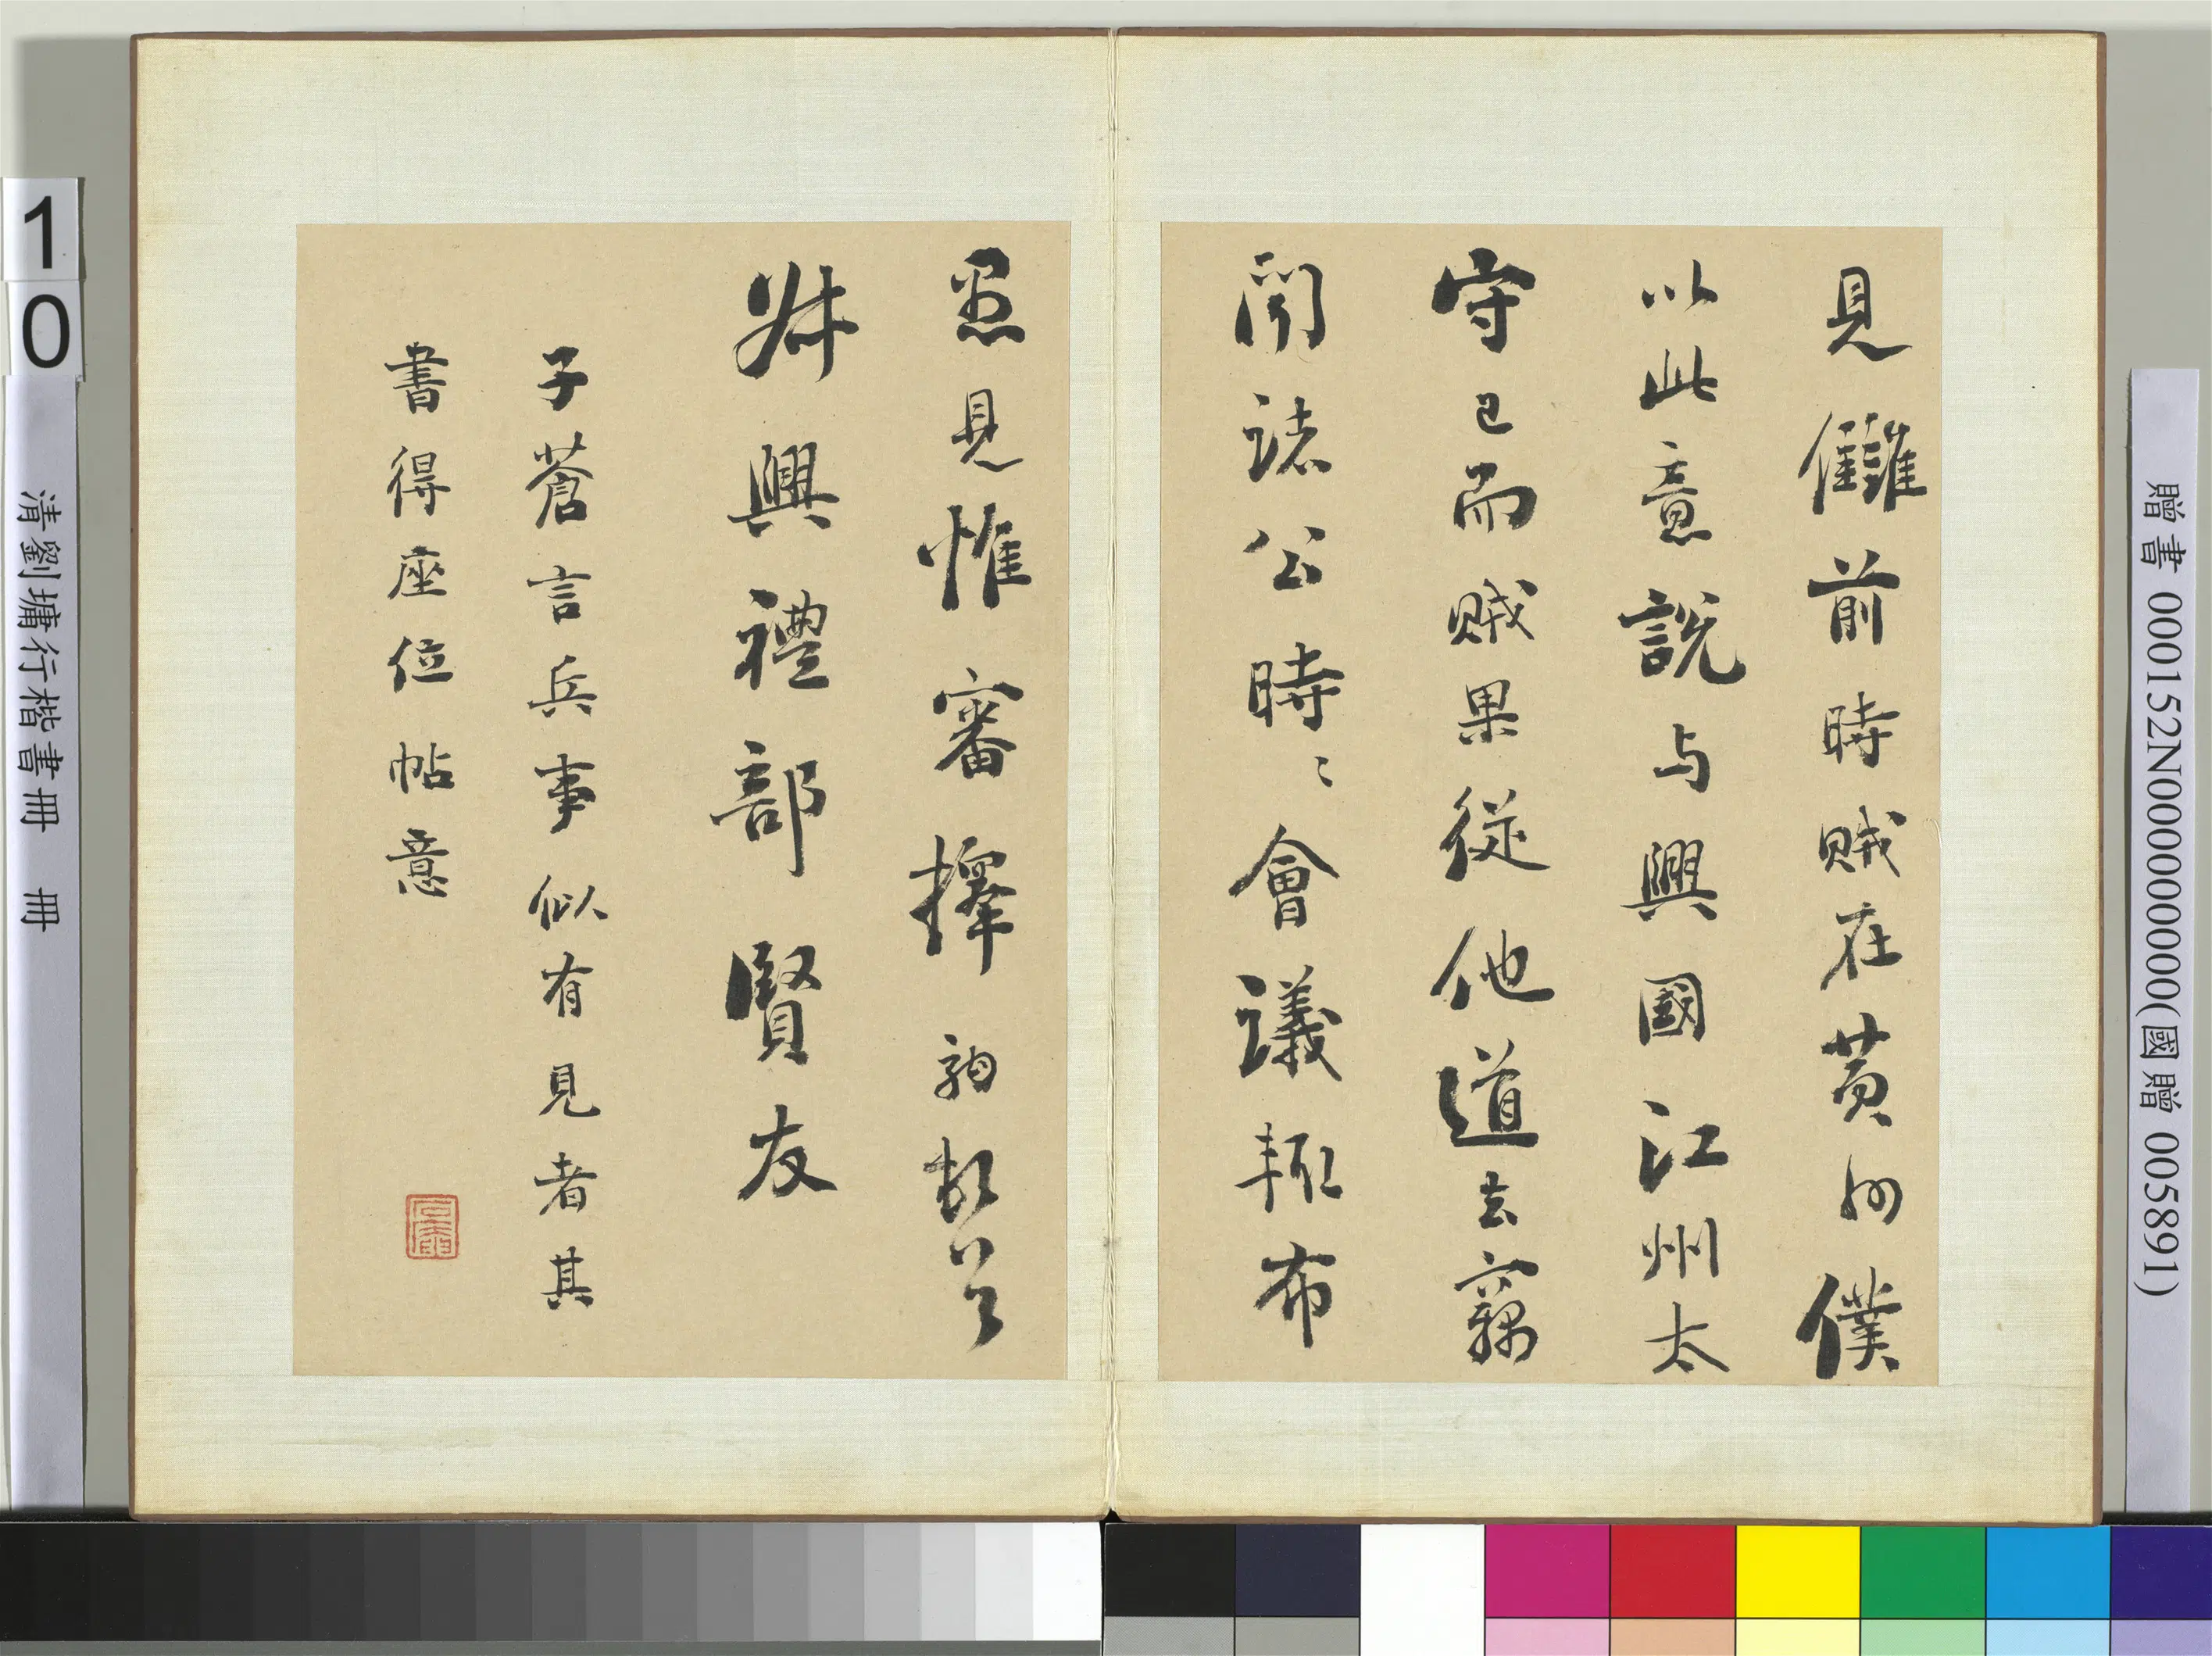 見讎前時賊在黃州僕
以此意說与興國江州太
守已而賊果從他道去竊
聞諸公時〻會議輒布
愚見惟審擇
興禮部賢友
子蒼言兵事似有見者其
書得座位帖意
10
清劉墉行楷書冊 冊
贈書 000152N000000000(國贈 005891)